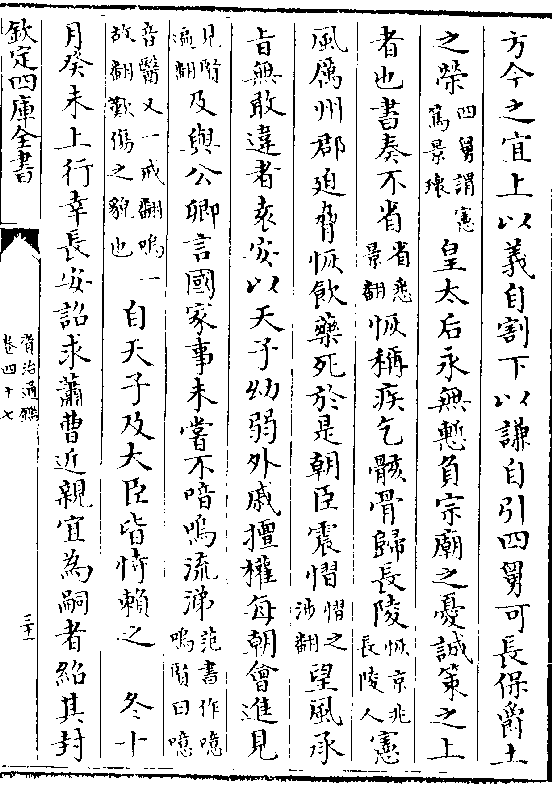 方今之宜上以義自割下以謙自引四舅可長保爵土
之榮四舅謂憲篤景瓌皇太后永無慙負宗廟之憂誠策之上
者也書奏不省省悉景翻恢稱疾乞骸骨歸長陵恢京兆長陵人憲
風厲州郡迫脅恢飲藥死於是朝臣震慴慴之涉翻望風承
旨無敢違者袁安以天子幼弱外戚擅權每朝會進見
見賢遍翻及與公卿言國家事未嘗不喑嗚流涕范書作噫嗚賢曰噫
音醫又一戒翻嗚一故翻歎傷之貌也自天子及大臣皆恃賴之 冬十
月癸未上行幸長安詔求蕭曹近親宜為嗣者紹其封
欽定四庫全書
資治通鑑
卷四十七
三十一